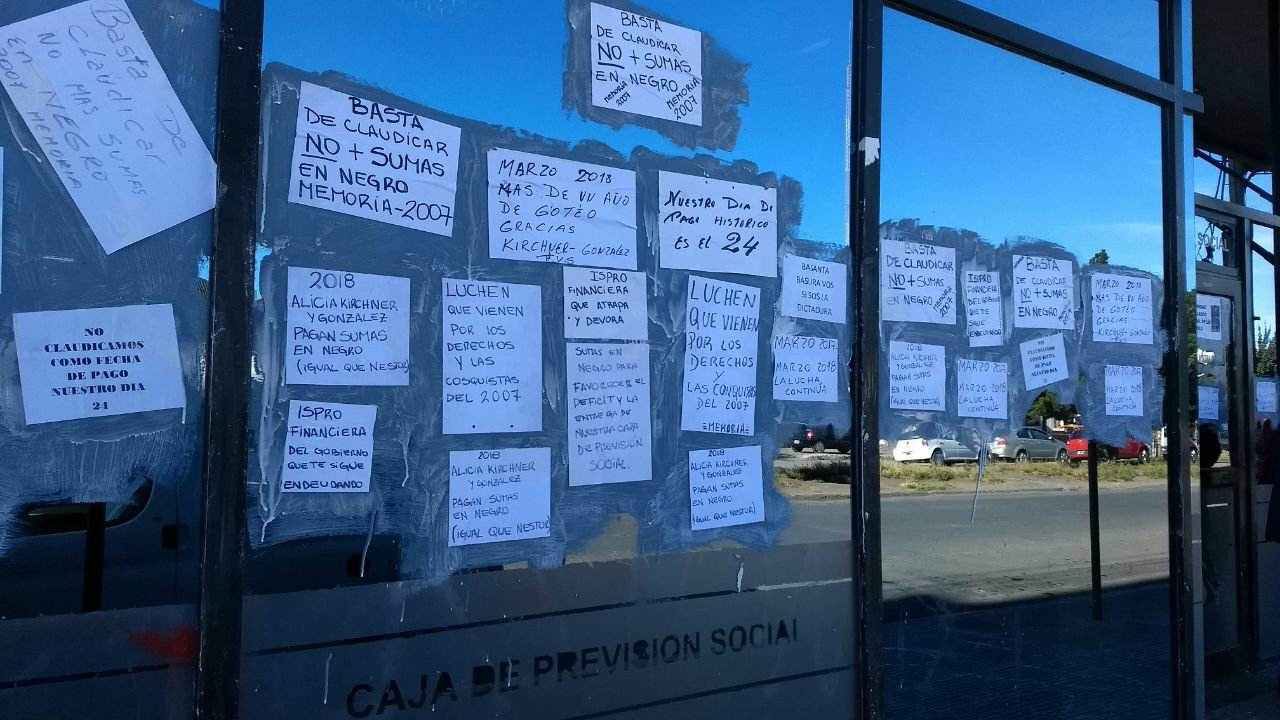 Basta De
Claudicar
NO MAS SUMAS
EN NEGRO
2007 MEMORIA
NO
CLAUDICAMOS
COMO FECHA
DE PAGO
NUESTRO DIA
24
BASTA
DE CLAUDICAR
NO + SUMAS
EN NEGRO
MEMORIA-2007
2018
ALICIA KIRCHNER
Y GONZALEZ
PAGAN SUMAS
EN NEGRO
(IGUAL QUE NESTOR)
ISPRO
FINANCIERA
DEL GOBIERNO
QUE TE SIGUE
ENDEUDANDO
BASTA
DE CLAUDICAR
NO + SUMAS
EN NEGRO
MEMORIA
2007
MEMORIA
2007
MARZO 2018
MAS DE UN AÑO
DE GOTEO
GRACIAS
KIRCHNER-GONZALEZ
NUESTRO DIA DE
PAGO HISTORICO
ES EL 24
LUCHEN
QUE VIENEN
POR LOS
DERECHOS
Y LAS
COSQUISTAS
DEL 2007
ISPRO
FINANCIERA
QUE ATRAPA
Y DEVORA
SUMAS EN
NEGRO PARA
FAVORECER EL
DEFICIT Y LA
ENTREGA DE
NUESTRA CAJA
DE PREVISIÓN
SOCIAL
2018
ALICIA KIRCHNER
Y GONZALEZ
PAGAN SUMAS
EN NEGRO
(IGUAL QUE NESTOR
LUCHEN
QUE VIENEN
POR LOS
DERECHOS
Y LAS CONQUISTAS
DEL 2007
=MEMORIA=
2018
ALICIA KIRCHNER
Y GONZALEZ
PAGAN SUMAS
EN NEGRO
(IGUAL QUE NESTOR)
BASURA VOS
SI SOS LA
DICTADURA
MARZO 2017
MARZO 2018
LA LUCHA
CONTINUA
BASTA
DE CLAUDICAR
NO + SUMAS
EN NEGRO
MEMORIA
2007
ISPRO
FINANCIERA
DEL GOBIERNO
QUE TE
SIGUE
ENDEUDANDO
BASTA
DE CLAUDICAR
NO + SUMAS
EN NEGRO
MARZO 2018
MAS DE UN AÑO
DE GOTEO
GRACIAS
KIRCHNER-GONZALEZ
2018
ALICIA KIRCHNER
Y GONZALEZ
PAGAN SUMAS
EN NEGRO
MARZO 2017
MARZO 2018
LA LUCHA
CONTINUA
MARZO 2018
LA LUCHA
CONTINUA
SOCIAL
CAJA DE PREVISION SOCIAL